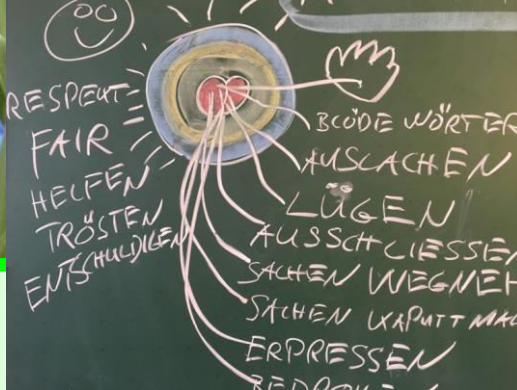 RESPEKT
FAIR
HELFEN
TRÖSTEN
ENTSCHULDIGEN
BLÖDE WÖRTER
AUSLACHEN
LÜGEN
AUSSCHLIESSEN
SACHEN WEGNEH
SACHEN KAPUTT MAC
ERPRESSEN